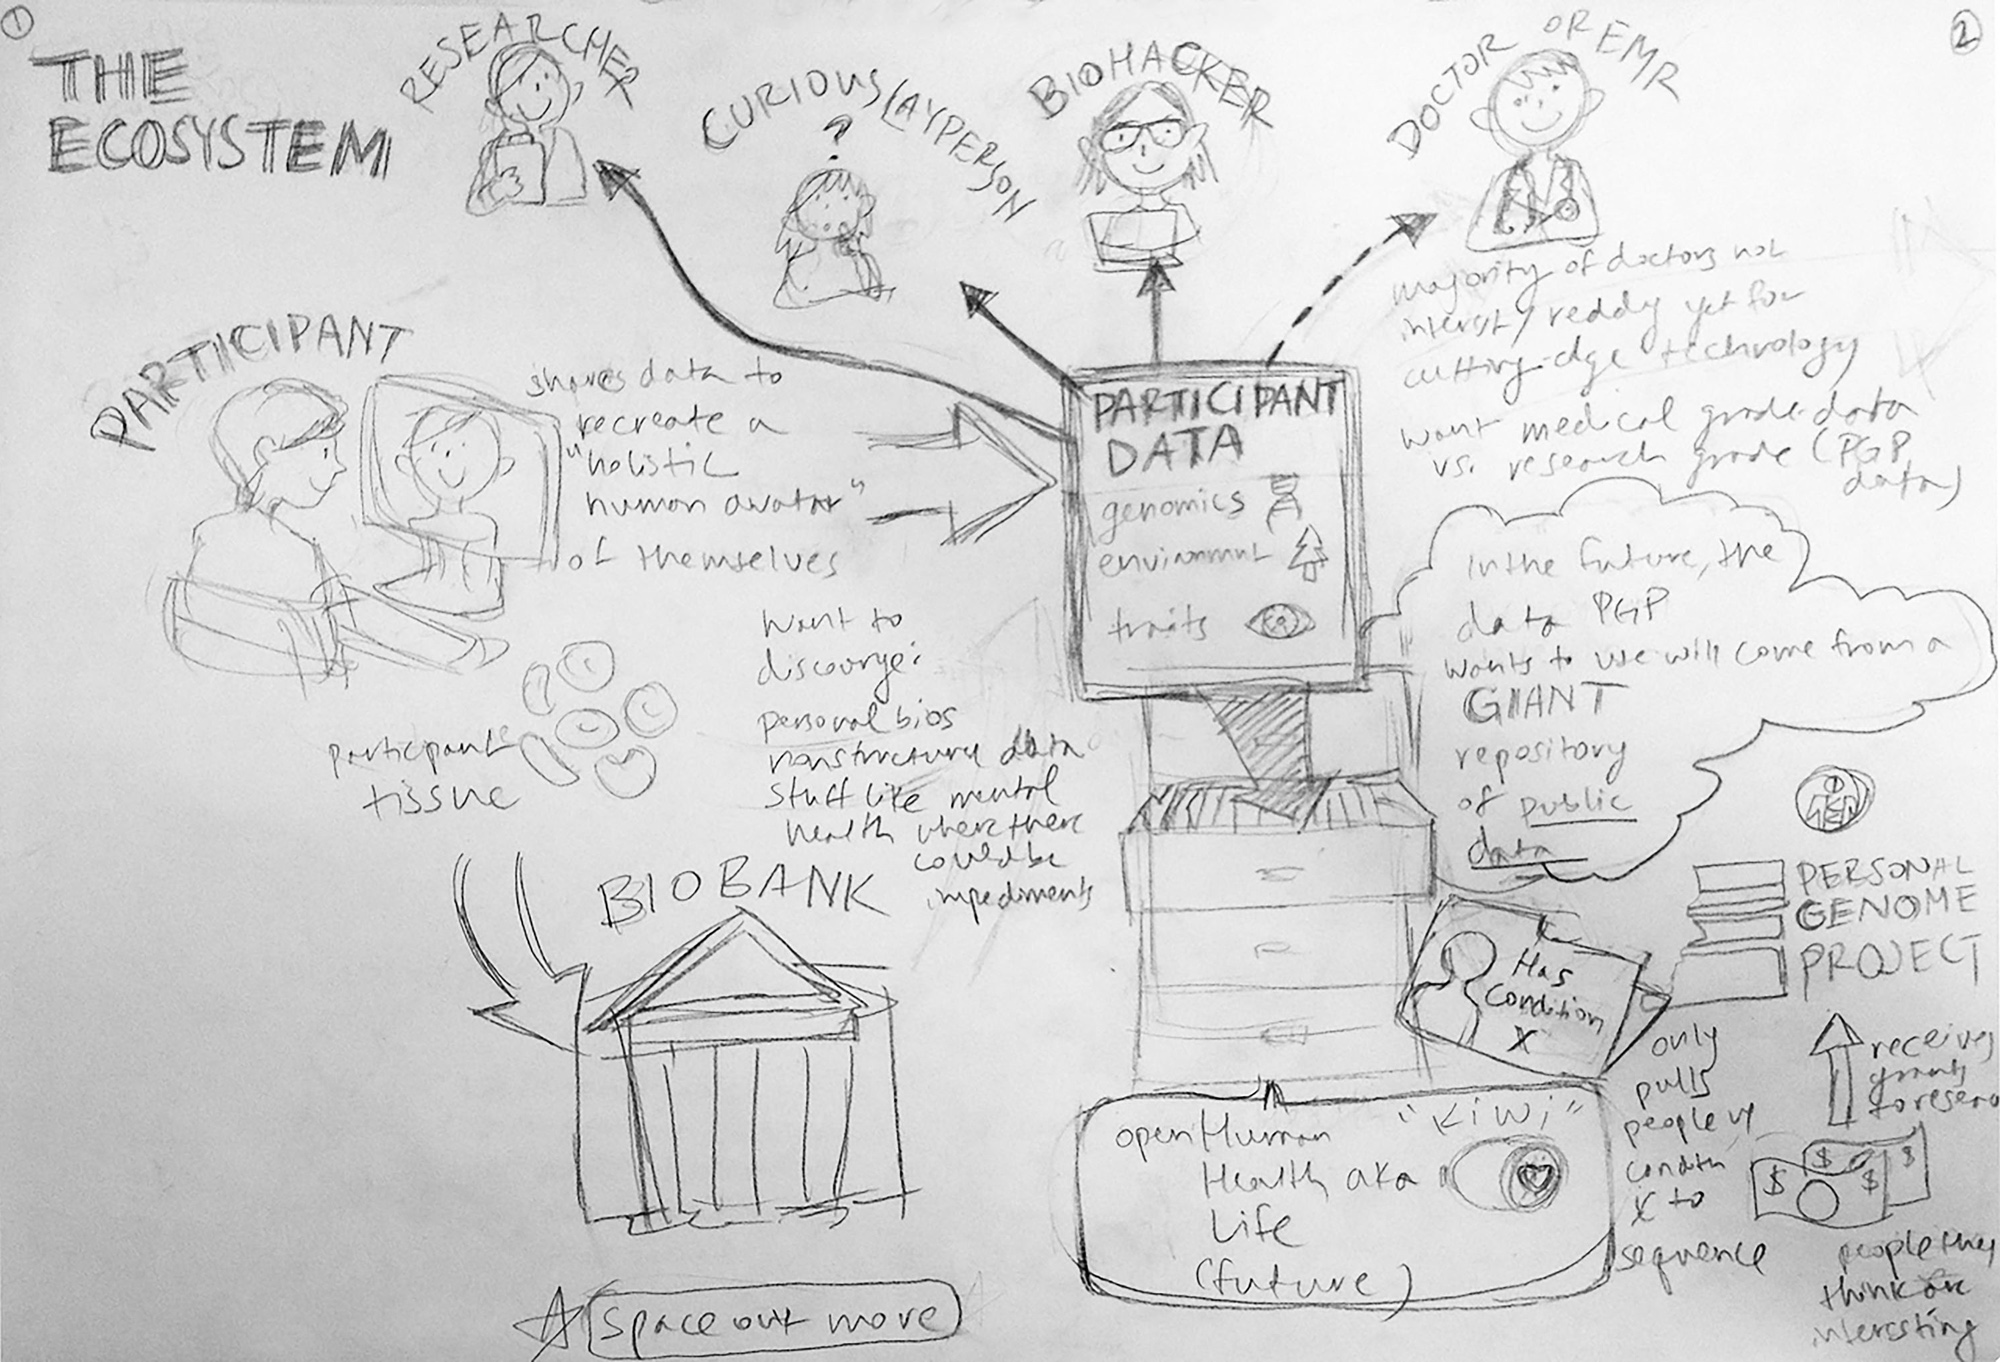 1
THE
ECOSYSTEM
RESEARCHER
CURIOUS LAYPERSON
?
BIOHACKER
DOCTOR OR EMR
2
majority of doctors not
interest/ reddy yet for
cutting-edge technology
want medical grade data
vs. research grade (PGP
data)
PARTICIPANT
shares data to
recreate a
"holistic
human avatar"
of themselves
PARTICIPANT
DATA
genomics
environment
traits
In the future, the
data PGP
wants to use will come from a
GIANT
repository
of public
data
participant
tissue
want to
discourge:
personal bios
nonstructure data
stuff like mental
health where there
could be
impediments
BIOBANK
PERSONAL
GENOME
PROJECT
Has
Condition
X
only
pulls
people w/
X to
sequence
receives
grants
$ $ $ $
people they
think are
interesting
open Human
Health aka
Life
(future)
"KiWi"
Space out more